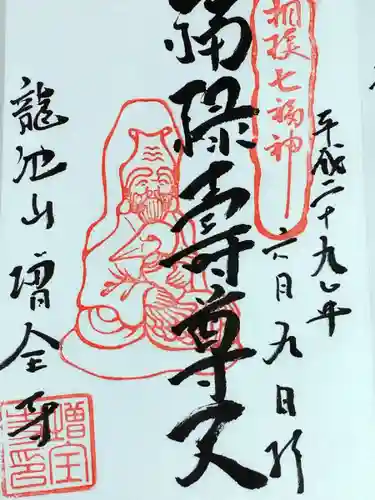 相模七福神
平成二十九年
六月九日
福禄寿尊天
龍池山増全寺
増全寺印